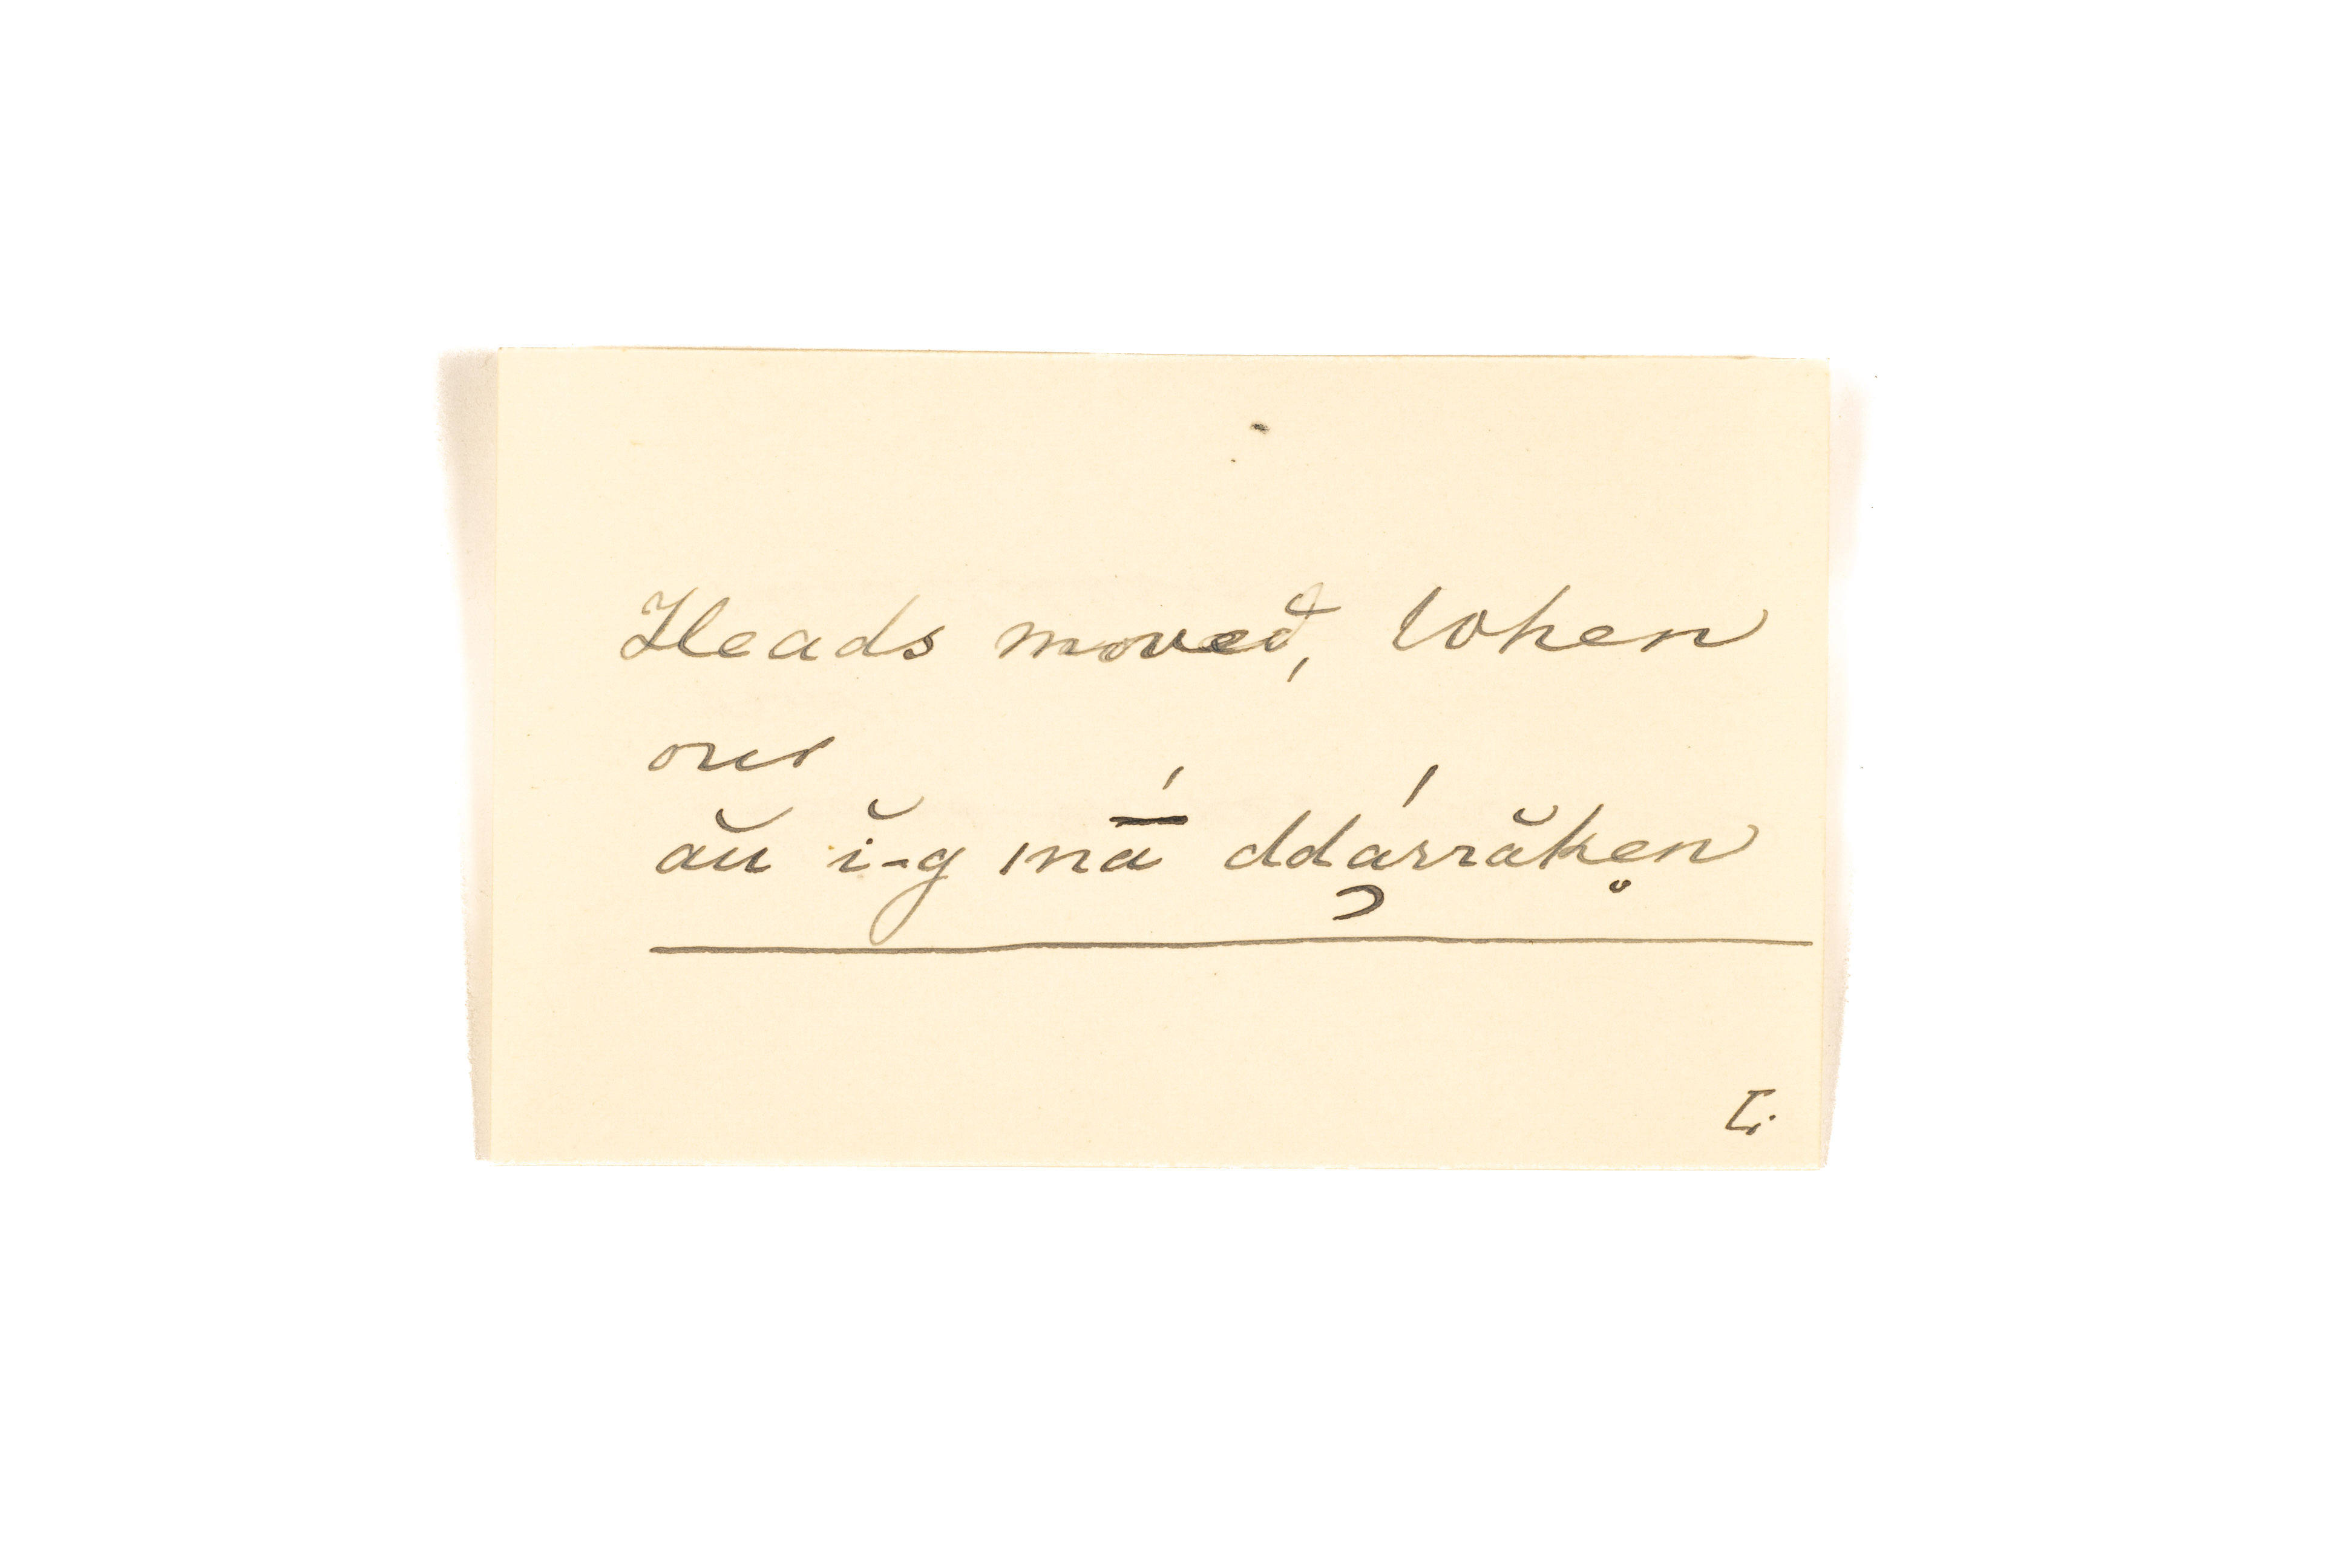 Heads moved, When
our
ău ĭ-g mā́ ddárrăken
L.